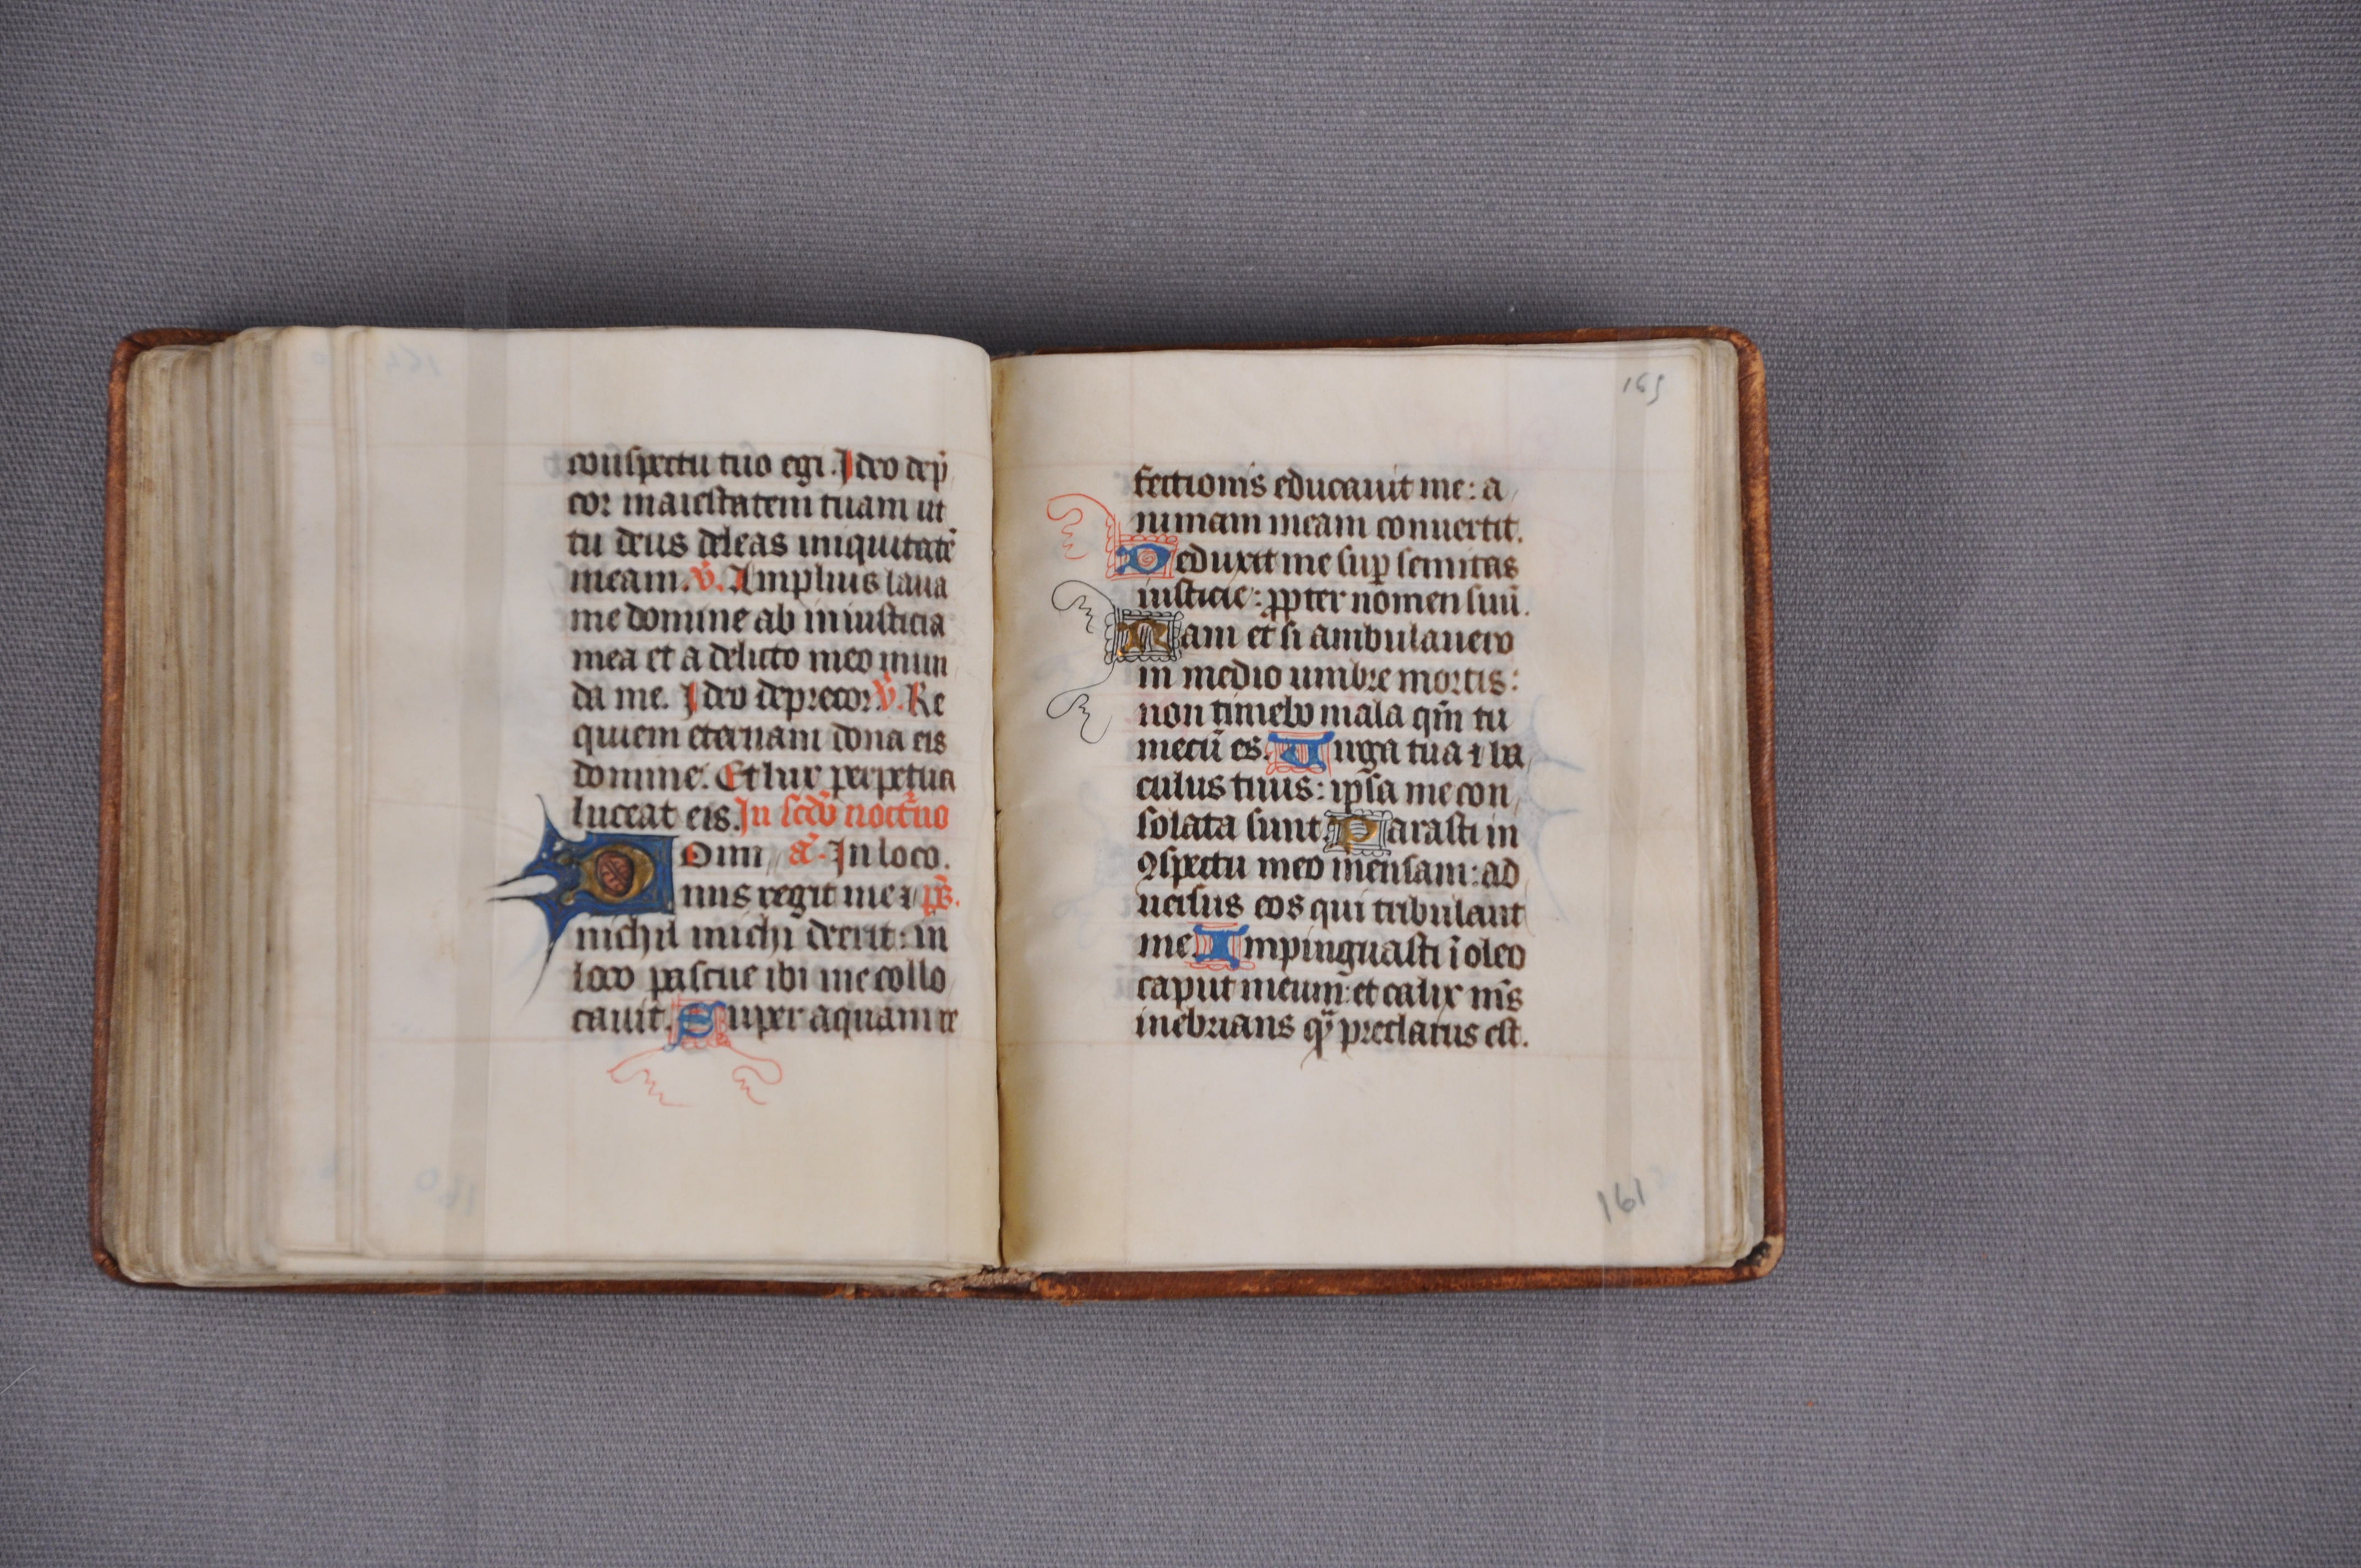 conspectu tuo egi. Ideo dep̄
cor maiestatem tuam ut
tu deus deleas iniquitatē
meam. v̄. Amplius laua
me domine ab iniusticia
mea et a delicto meo mun
da me. Ideo deprecor v̄. Re
quiem eternam dona eis
domine. Et lux perpetua
luceat eis. In scdo noct̄no
Domi a᷑. In loco.
nus regit me ⁊ ps̄.
nichil michi deerit: in
loco pascue ibi me collo
cauit. Super aquam re
165
fectionis educauit me: a
nimam meam conuertit.
Deduxit me sup̱ semitas
iusticie: ꝓpter nomen suū.
Nam et si ambulauero
in medio umbre mortis:
non timebo mala qm̄ tu
mecū es. Uirga tua ⁊ ba
culus tuus: ip̄sa me con
solata sunt. Parasti in
ꝯspectu meo mensam: ad
uersus eos qui tribulant
me. Impinguasti ī oleo
caput meum: et calix m̄s
inebrians qͣ̄ preclarus est.
161